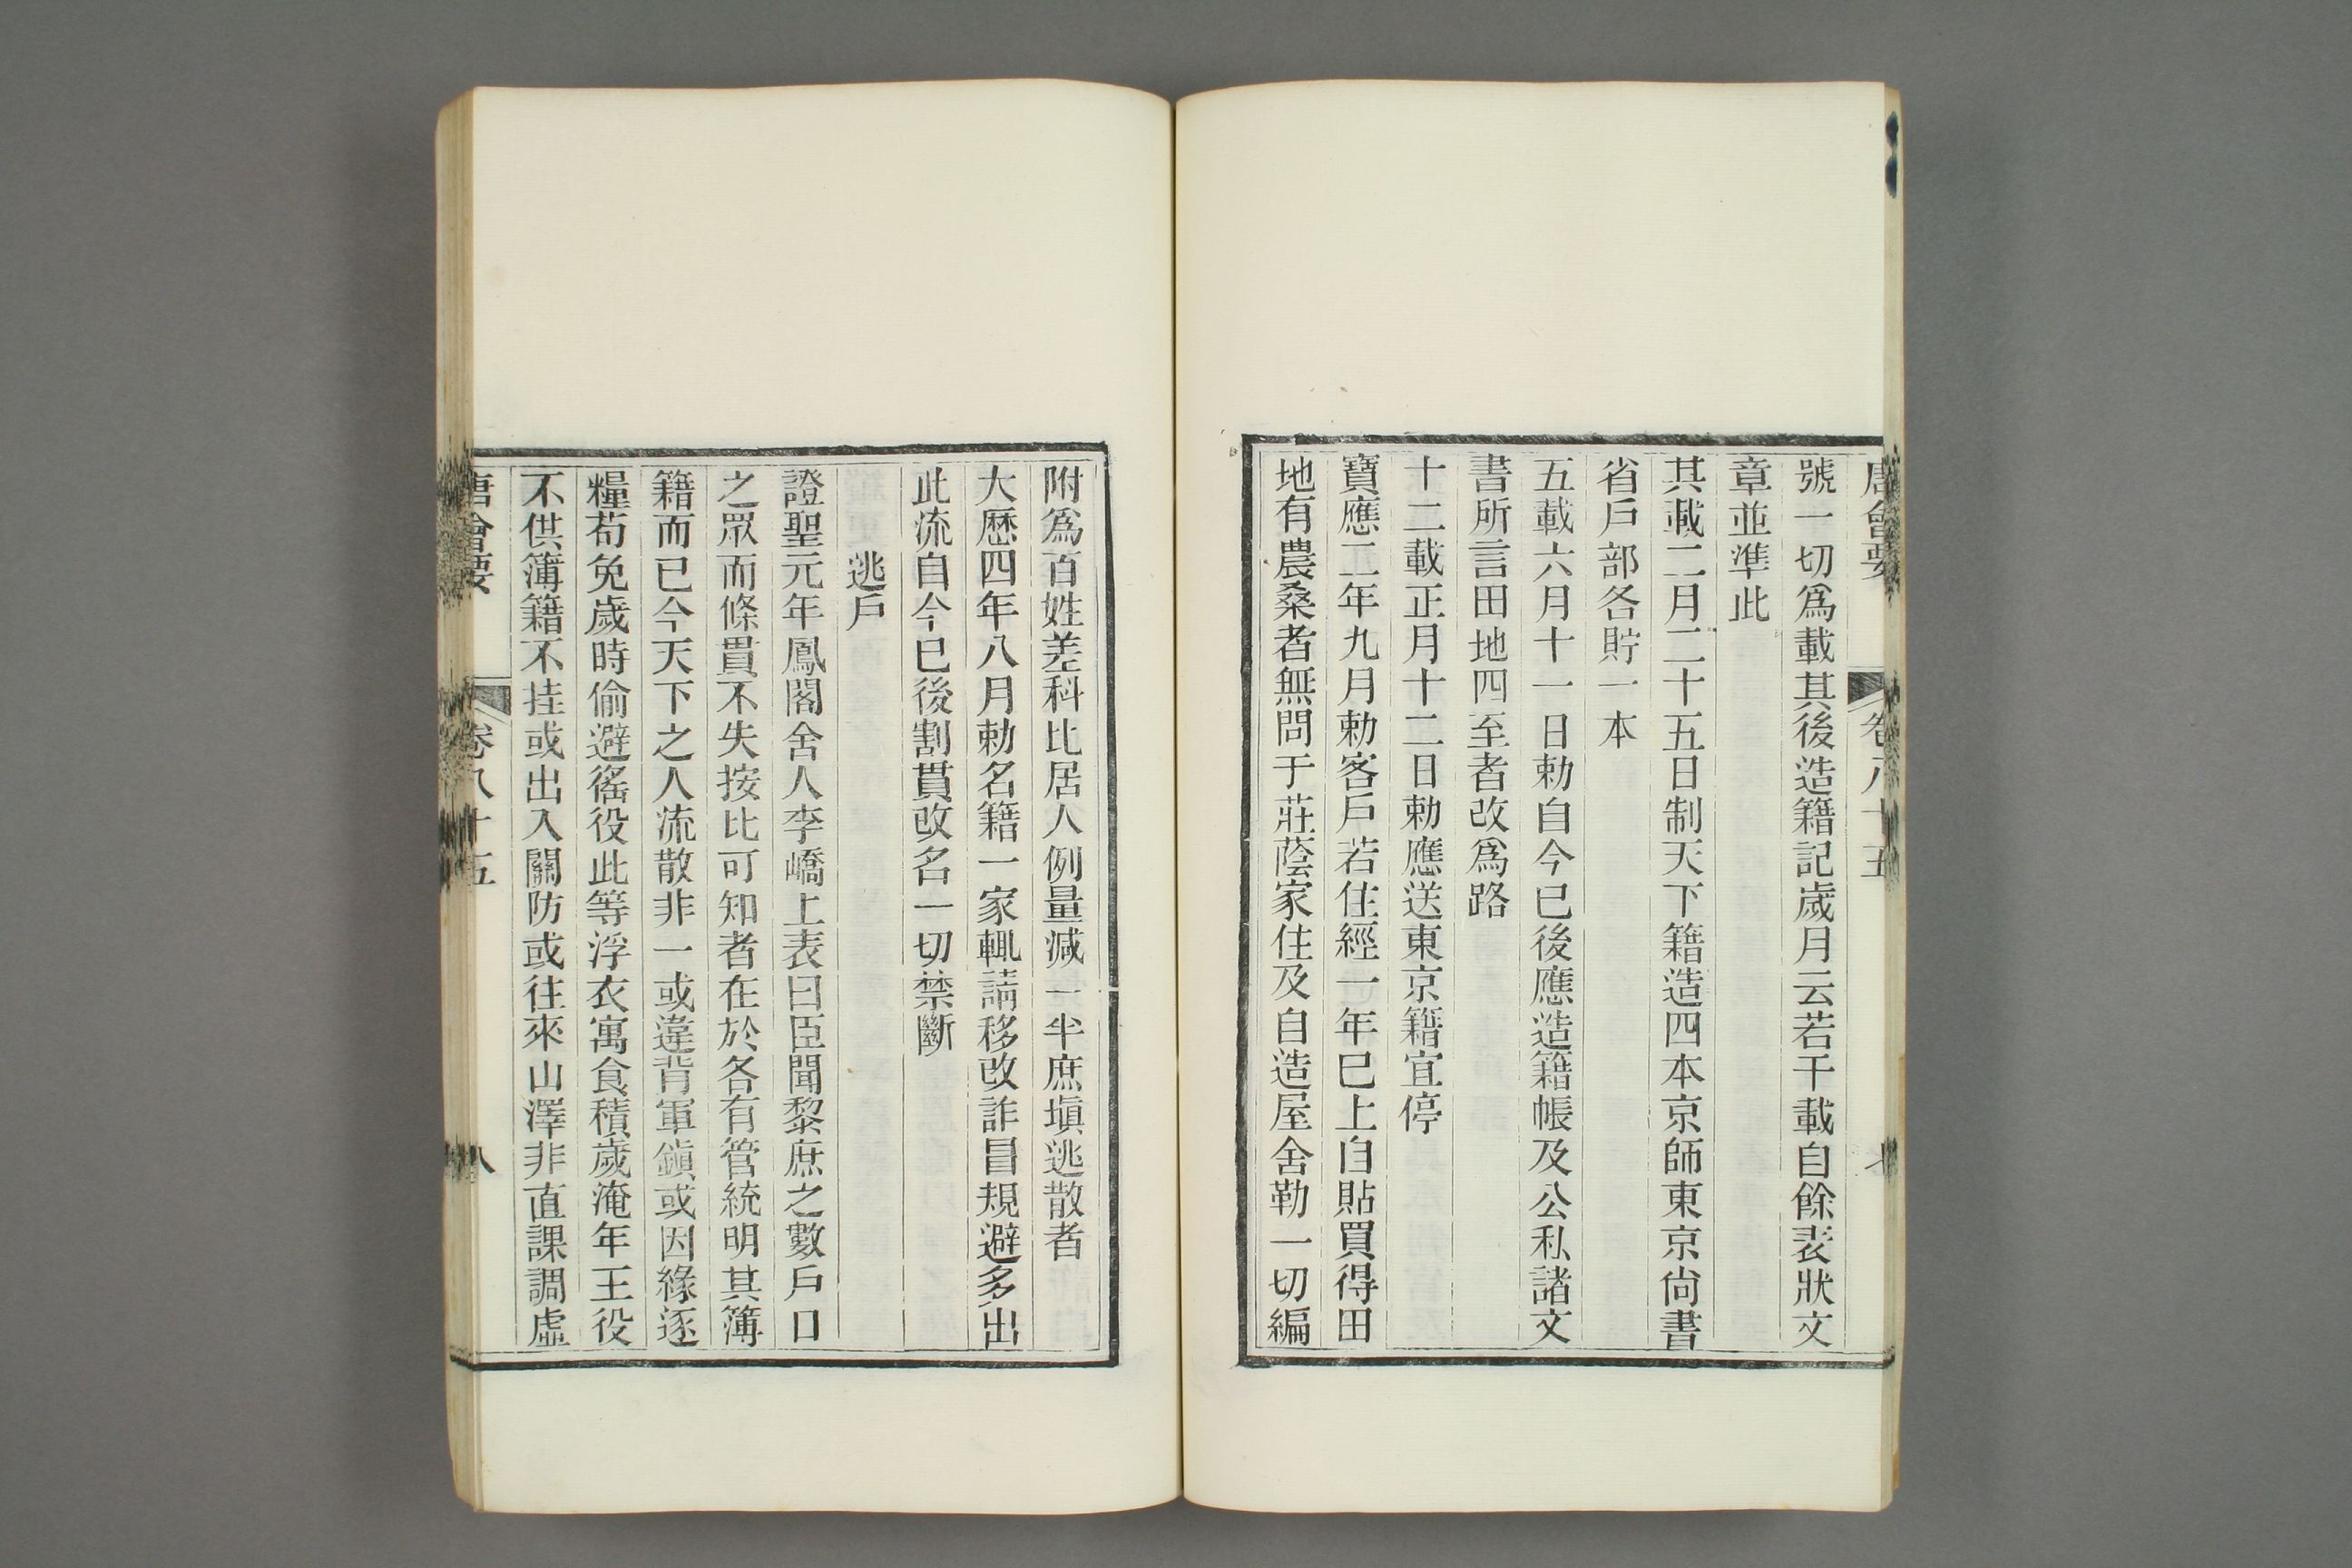 唐會要 卷八十五 七
號一切爲載其後造籍記歲月云若干載自餘表狀文
章並準此
其載二月二十五日制天下籍造四本京師東京尙書
省戶部各貯一本
五載六月十一日勅自今已後應造籍帳及公私諸文
書所言田地四至者改爲路
十二載正月十二日勅應送東京籍宜停
寶應二年九月勅客戶若住經一年已上自貼買得田
地有農桑者無問于莊蔭家住及自造屋舍勒一切編
附爲百姓差科比居人例量減一半庶塡逃散者
大歷四年八月勅名籍一家輒請移改詐冒規避多出
此流自今已後割貫改名一切禁斷
逃戶
證聖元年鳳閣舍人李嶠上表曰臣聞黎庶之數戶口
之眾而條貫不失按比可知者在於各有管統明其簿
籍而已今天下之人流散非一或違背軍鎭或因緣逐
糧苟免歲時偷避徭役此等浮衣寓食積歲淹年王役
不供簿籍不挂或出入關防或往來山澤非直課調虛
唐會要 卷八十五 八